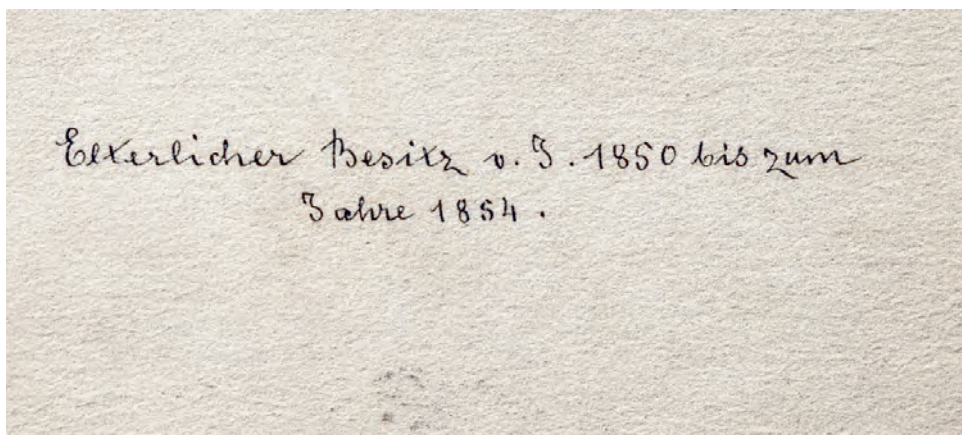 Elterlicher Besitz v. J. 1850 bis zum
Jahre 1854.